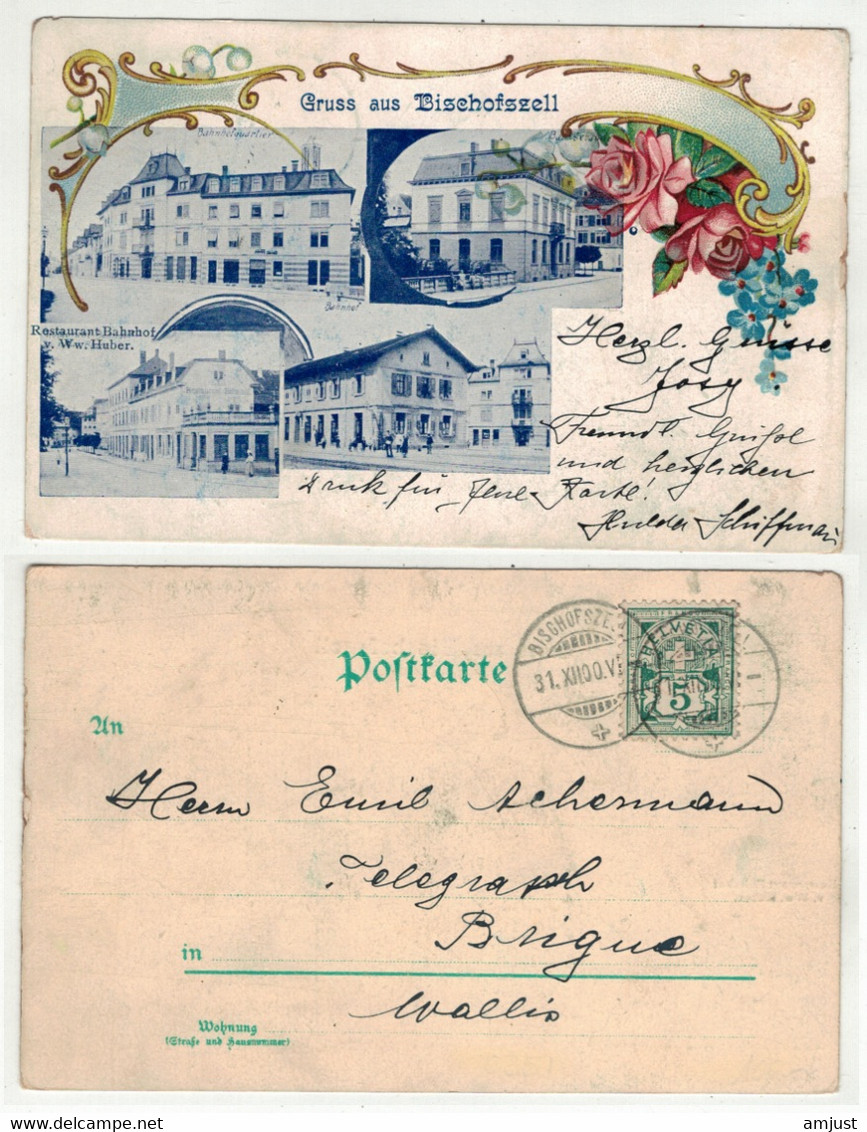 Gruss aus Bischofszell
Bahnhofquartier
Bahnhof
Restaurant Bahnhof
v. Ww. Huber.
Herzl. Grüsse
Josy
Freundl.
und herzlichen
für Karte!
Hulda Schiffman
BISCHOFSZELL
31.XII00.VI
HELVETIA
5
Postkarte
An
Herrn Emil Achermann
Telegraph
in Brigue
Wallis
Wohnung
(Straße und Hausnummer)
amjust
delcampe.net